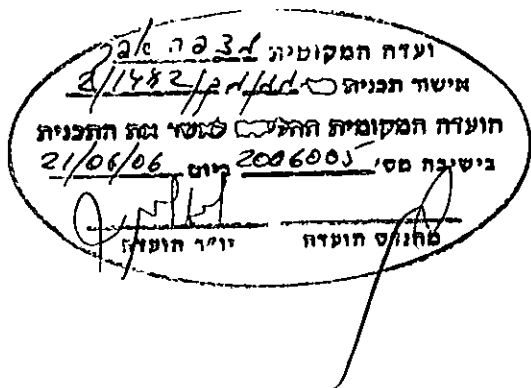 ועדה המקומית מצפה אפק
אישור תכנית מק/ממ/1482/2
הועדה המקומית החליטה לאשר את התכנית
בישיבה מס' 2006005 ביום 21/06/06
יו"ר הועדה מהנדס הועדה